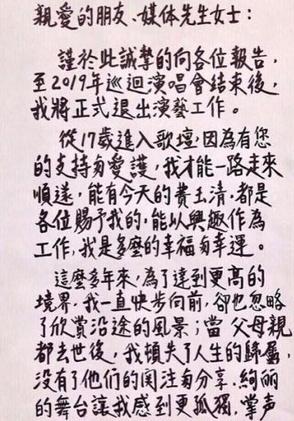 親愛的朋友、媒体先生女士：
謹於此誠摯的向各位報告，
至2019年巡迴演唱會結束後，
我將正式退出演藝工作。
從17歲進入歌壇，因為有您
的支持与愛護，我才能一路走來
順遂，能有今天的費玉清，都是
各位賜予我的，能以興趣作為
工作，我是多麼的幸福与幸運。
這麼多年來，為了達到更高的
境界，我一直快步向前，卻也忽略
了欣賞沿途的風景；當父母親
都去世後，我頓失了人生的歸屬，
沒有了他們的関注与分享，絢麗
的舞台讓我感到更孤獨，掌声